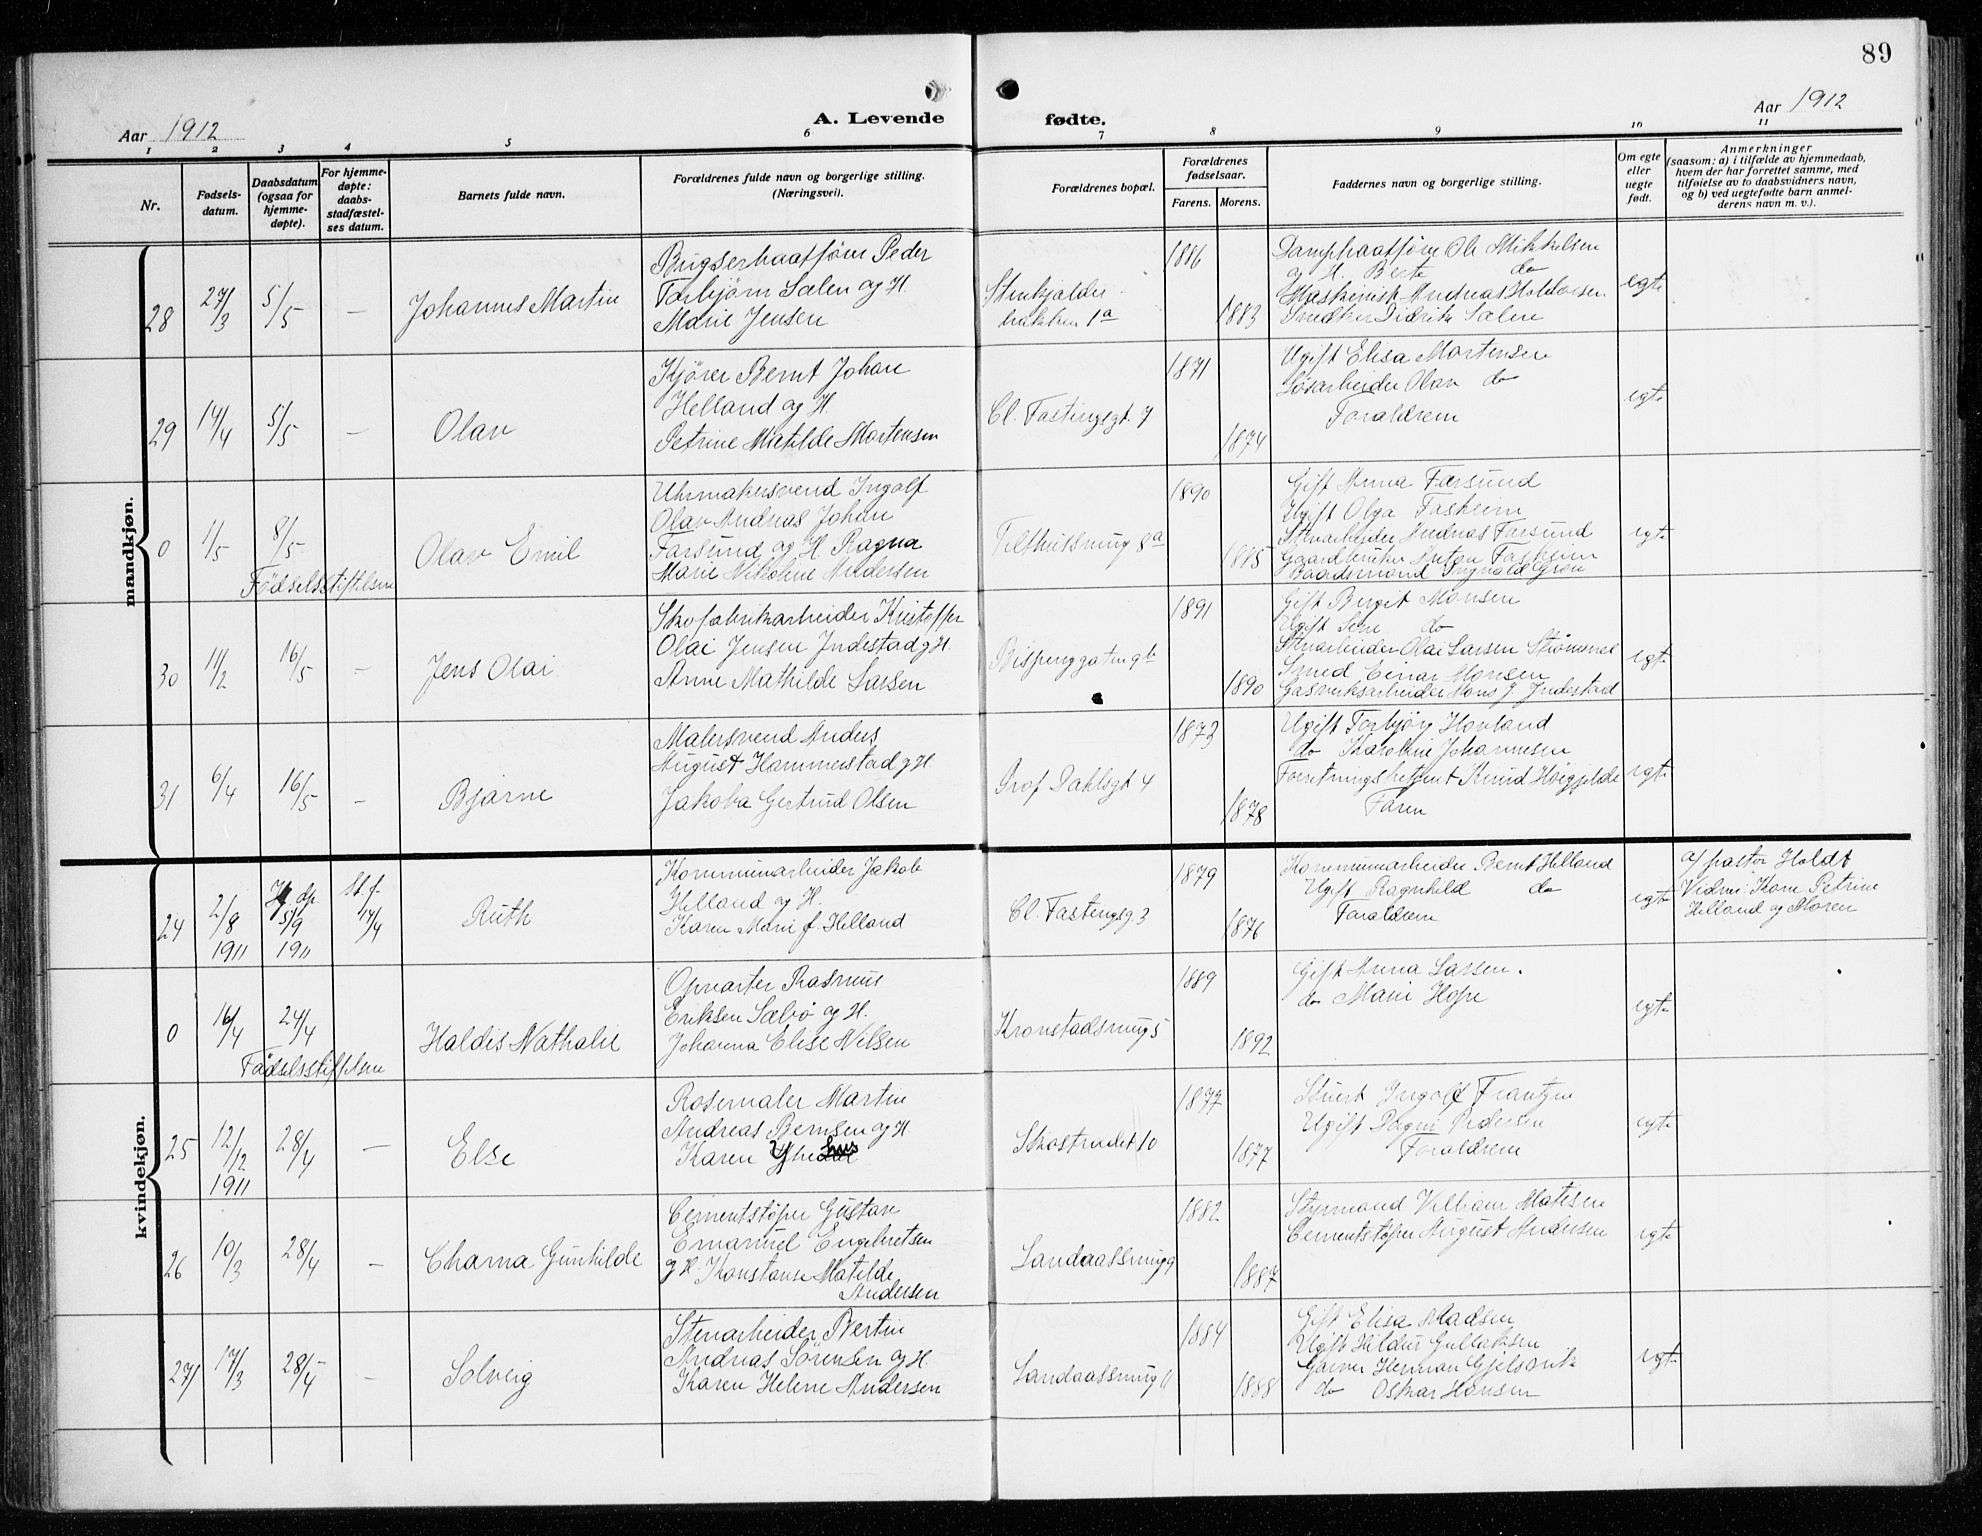 89
Aar 1912
A. Levende
fødte.
Aar 1912
1 2 3 4 5 6 7 8 9 10 11
Nr.
Fødsels-
datum.
Daabsdatum
(ogsaa for
hjemme-
døpte).
For hjemme-
døpte:
daabs-
stadfæstel-
ses datum.
Barnets fulde navn.
Forældrenes fulde navn og borgerlige stilling.
(Næringsvei).
Forældrenes bopæl.
Forældrenes
fødselsaar.
Farens. Morens.
Faddernes navn og borgerlige stilling.
Om egte
eller
uegte
født.
Anmerkninger
(saasom: a) i tilfælde av hjemmedaab,
hvem der har forrettet samme, med
tilføielse av to daabsvidners navn,
og b) ved uegtefødte barn anmel-
derens navn m. v.).
mandkjøn.
28 27/3 5/5 — Johannes Martin
Bugserbaatfører Peder
Torbjørn Sælen og H.
Marie Jensen
Stenkjelder-
bakken 1a
1886 1883
Dampbaatfører Ole Mikkelsen
og H. Berte do
Maskinist Andreas
Snedker Didrik Sælen
egte
29 14/4 5/5 — Olav
Kjører Bernt Johan
Helland og H.
Petrine Matilde Mortensen
Cl. Fastingsgt. 7
1871 1874
Ugift Elisa Mortensen
Løsarbeider Olav do
Forældrene
egte
0 1/5 8/5 Olav Emil
Fødselsstiftelsen
Uhrmakersvend Ingolf
Olav Andreas Johan
Farsund og H. Ragna
Marie Nikoline Andersen
8a
1890 1885
Gift Anna Farsund
Ugift Olga Fasheim
Stenarbeider Andreas Farsund
Gaardbruker Anton Fasheim
Baadsmand Ingvald Grøn
egte
30 11/2 16/5 — Jens Olai
Skofabrikarbeider Kristoffer
Olai Jensen Indestad og H.
Anne Mathilde Larsen
Bispenggaten 9b
1891 1890
Gift Birgit Monsen
Ugift Lene do
Stenarbeider Olai Larsen Strømnes
Smed Einar Monsen
Gasverksarbeider Mons J. Indestad
egte
31 6/4 16/5 — Bjarne
Malersvend Anders
August Hammerstad og H.
Jakoba Gertrud Olsen
Prof Dahlsgt 4
1873 1878
Ugift Torbjørg Hovland
do Karoline Johannesen
Forretningsbetjent Knud
Faren
egte
kvindekjøn.
24 2/8 1911 Hj. dp 5/9 1911 St.f. 14/4 Ruth
Kommunearbeider Jakob
Helland og H.
Karen Marie f. Helland
Cl. Fastingsg 3
1879 1876
Kommunearbeider Bernt Helland
Ugift Ragnhild do
Forældrene
egte
af pastor Holdt
Vidner: Kone Petrine
Helland og Moren
0 16/4 24/4 Haldis Nathalie
Fødselsstiftelsen
Opvarter Rasmus
Eriksen Sæbø og H.
Johanna Elise Nilsen
Kronstadsveug 5
1889 1892
Gift Anna Larsen.
do Marie Hope
egte
25 12/12 1911 28/4 — Else
Rosemaler Martin
Andreas Bernsen og H
Karen
Skostrædet 10
1877 1877
Stuert Ingolf Frantzen
Ugift Dagni Pedersen
Forældrene
egte
26 10/3 28/4 — Charna Gunhilde
Cementstøper Gustav
Emanuel Engebretsen
og H. Konstanse Matilde
Andersen
Landaassveug 9
1882 1887
Styrmand Villiam Matesen
Cementstøper August Andersen
egte
27 17/3 28/4 — Solveig
Stenarbeider Bertin
Andreas Sørensen og H.
Karen Helene Andersen
Landaassveug 11
1884 1888
Gift Elisa Madsen
Ugift Hildur Gullaksen
Garver Herman Gjelsvik
do Oskar Hansen
egte